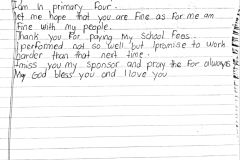 I am in primary four.
Let me hope that you are fine as for me am
fine with my people.
Thank you for paying my school fees.
I performed not so well but I promise to work
harder than that next time.
I miss you my sponsor and pray the for always
My God bless you and I love you